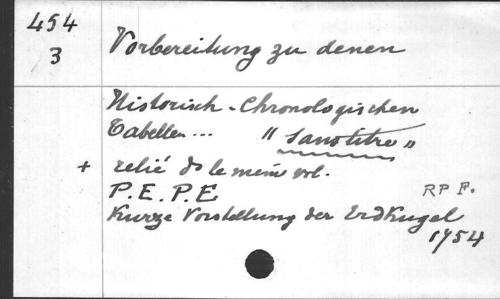 454
3
Vorbereitung zu denen
Historisch-Chronologischen
Tabellen... "Sans titre"
+ relié ds le meme vol.
P.E.P.E RP F.
Kurze Vorstellung der Erdkugel
1754